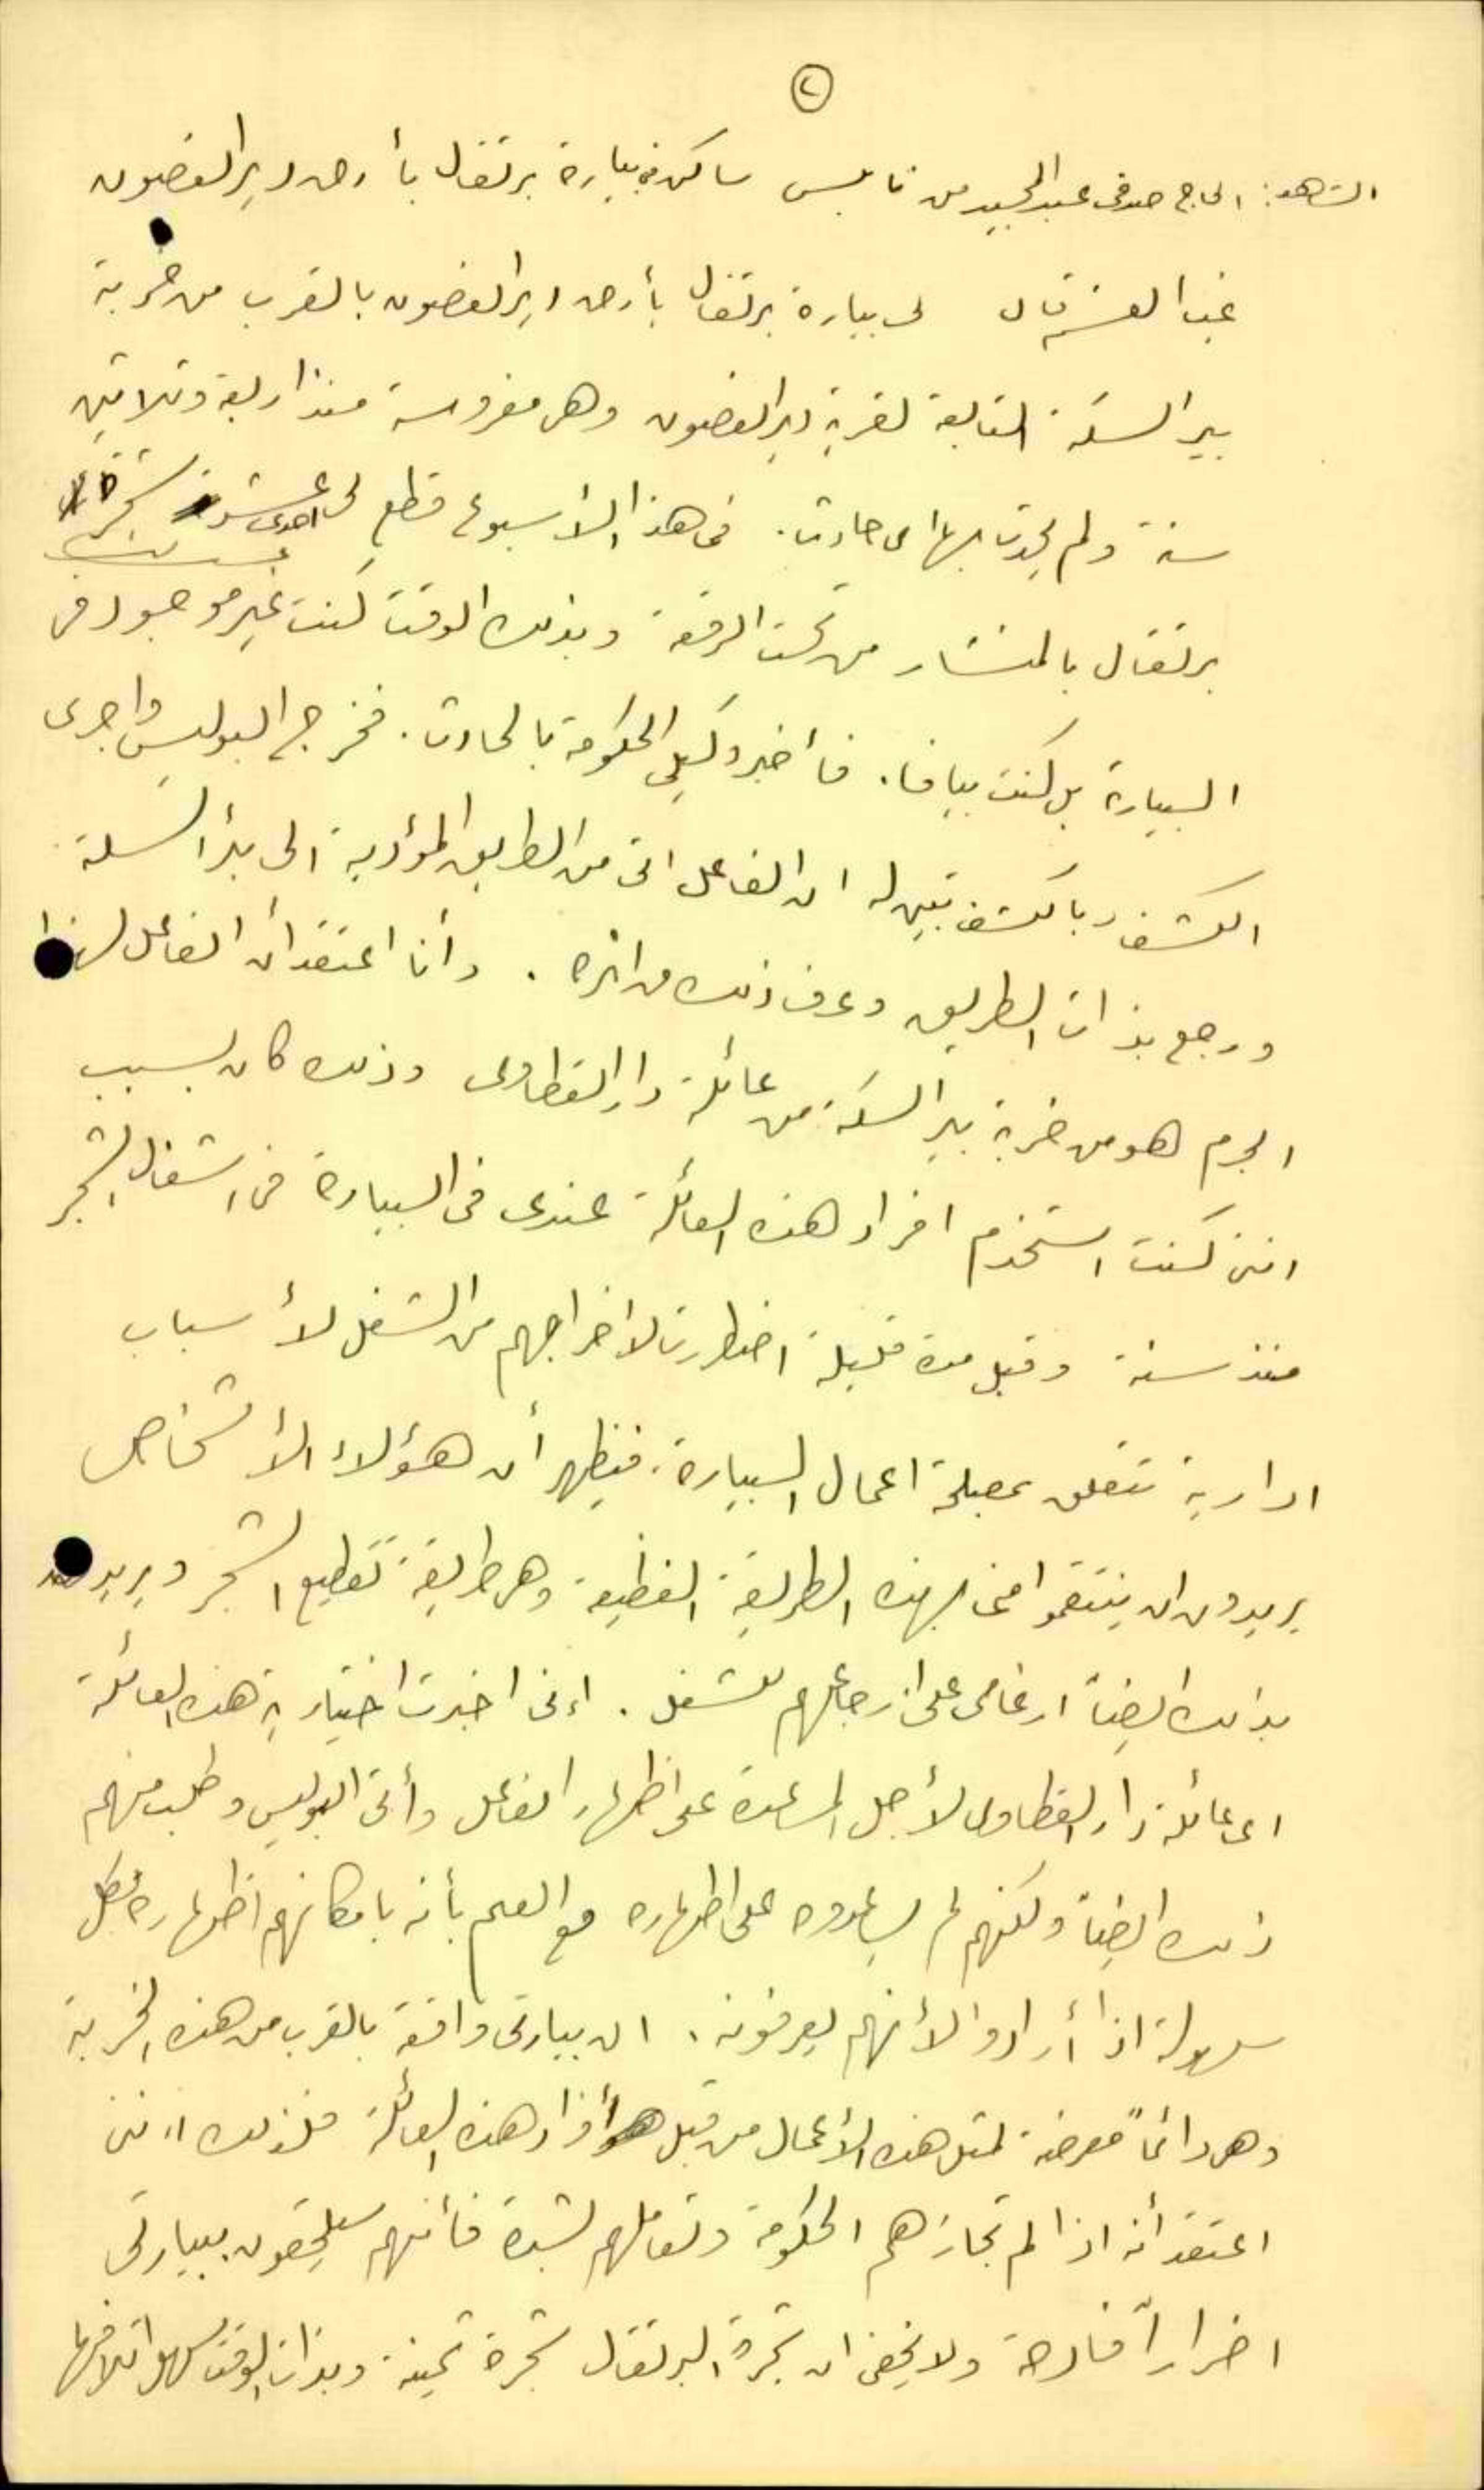 ٢
الشاهد: الحاج صدقي عبد المجيد من نابلس ساكن في بيارة برتقال بأرض دير الغصون
غب القسم قال لي بيارة برتقال بأرض دير الغصون بالقرب من خربة
بير السكة التابعة لقرية دير الغصون وهي مغروسة منذ اربعة وثلاثين
سنة ولم يحدث بها اي حادث. في هذا الأسبوع قطع لي احدى عشر شجرة
برتقال بالمنشار من تحت الرقعة وبذلك الوقت كنت غير موجود في
البيارة بل كنت بيافا. فأخبر وكيلي الحكومة بالحادث. فخرج البوليس واجرى
الكشف وبالكشف تبين له ان الفاعل اتى من الطريق المؤدية الى بئر السكة
ورجع بذات الطريق وعرف ذلك من اثره. وأنا اعتقد أن الفاعل لهذا
الجرم هو من خربة بير السكة من عائلة دار القطاوي وذلك كان بسبب
انني كنت استخدم افراد هذه العائلة عندي في البيارة في اشغال الشجر
منذ سنة وقبل مدة قليلة اضطررت لاخراجهم من الشغل لأسباب
ادارية تتعلق بمصلحة اعمال البيارة. فيظهر أن هؤلاء الأشخاص
يريدون ان ينتقموا مني بهذه الطريقة الفظيعة وهي طريقة تقطيع الشجر ويريدون
بذلك ايضاً ارغامي على ارجاعهم للشغل. انني اخبرت اختيارية هذه العائلة
اي عائلة دار القطاوي لأجل المساعدة على اظهار الفاعل وأتى البوليس وطلب منهم
ذلك ايضاً ولكنهم لم يساعدوه على اظهاره مع العلم بأنه بامكانهم اظهاره بكل
سهولة اذا أرادوا لأنهم يعرفونه. ان بيارتي واقعة بالقرب من هذه الخربة
وهي دائماً معرضة لمثل هذه الأعمال من قبل أفراد هذه العائلة فلذلك انني
اعتقد أنه اذا لم تجازهم الحكومة وتعاملهم بشدة فأنهم سيلحقون ببيارتي
اضراراً فادحة ولا يخفى ان شجرة البرتقال شجرة ثمينة وبذات الوقت سهل اتلافها